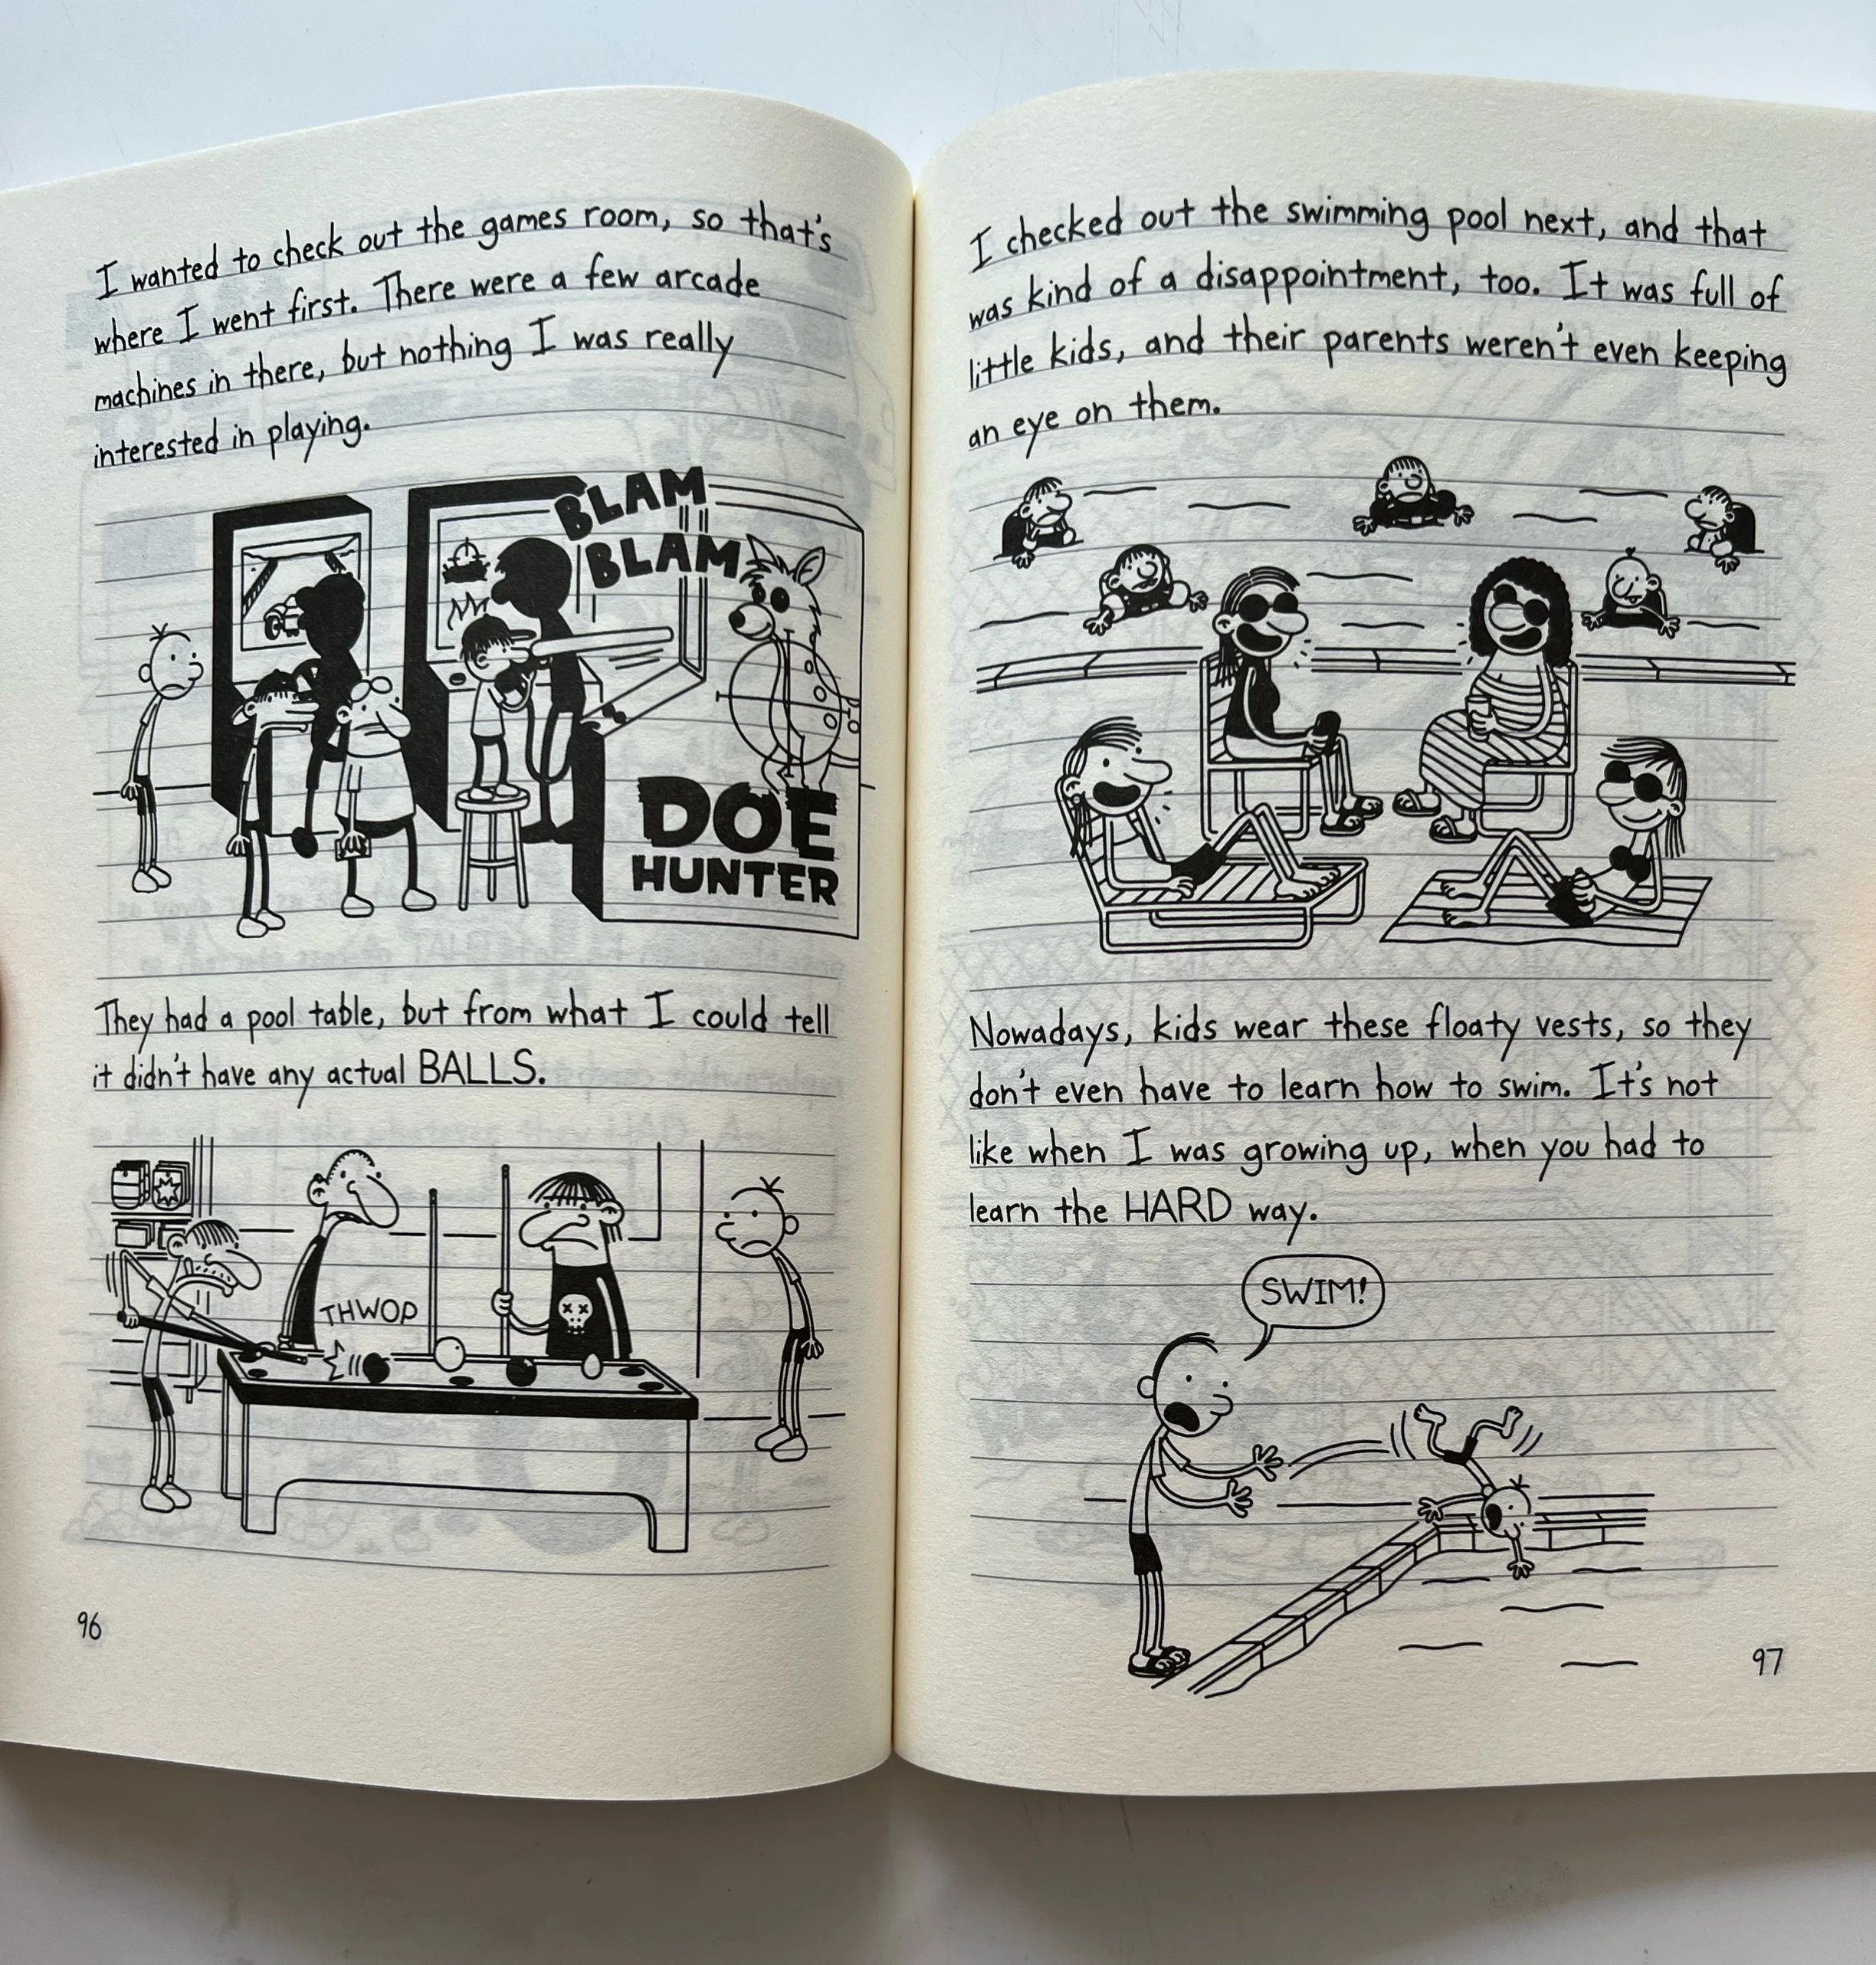 I wanted to check out the games room, so that's
where I went first. There were a few arcade
machines in there, but nothing I was really
interested in playing.
BLAM
BLAM
DOE
HUNTER
They had a pool table, but from what I could tell
it didn't have any actual BALLS.
THWOP
96
I checked out the swimming pool next, and that
was kind of a disappointment, too. It was full of
little kids, and their parents weren't even keeping
an eye on them.
Nowadays, kids wear these floaty vests, so they
don't even have to learn how to swim. It's not
like when I was growing up, when you had to
learn the HARD way.
SWIM!
97